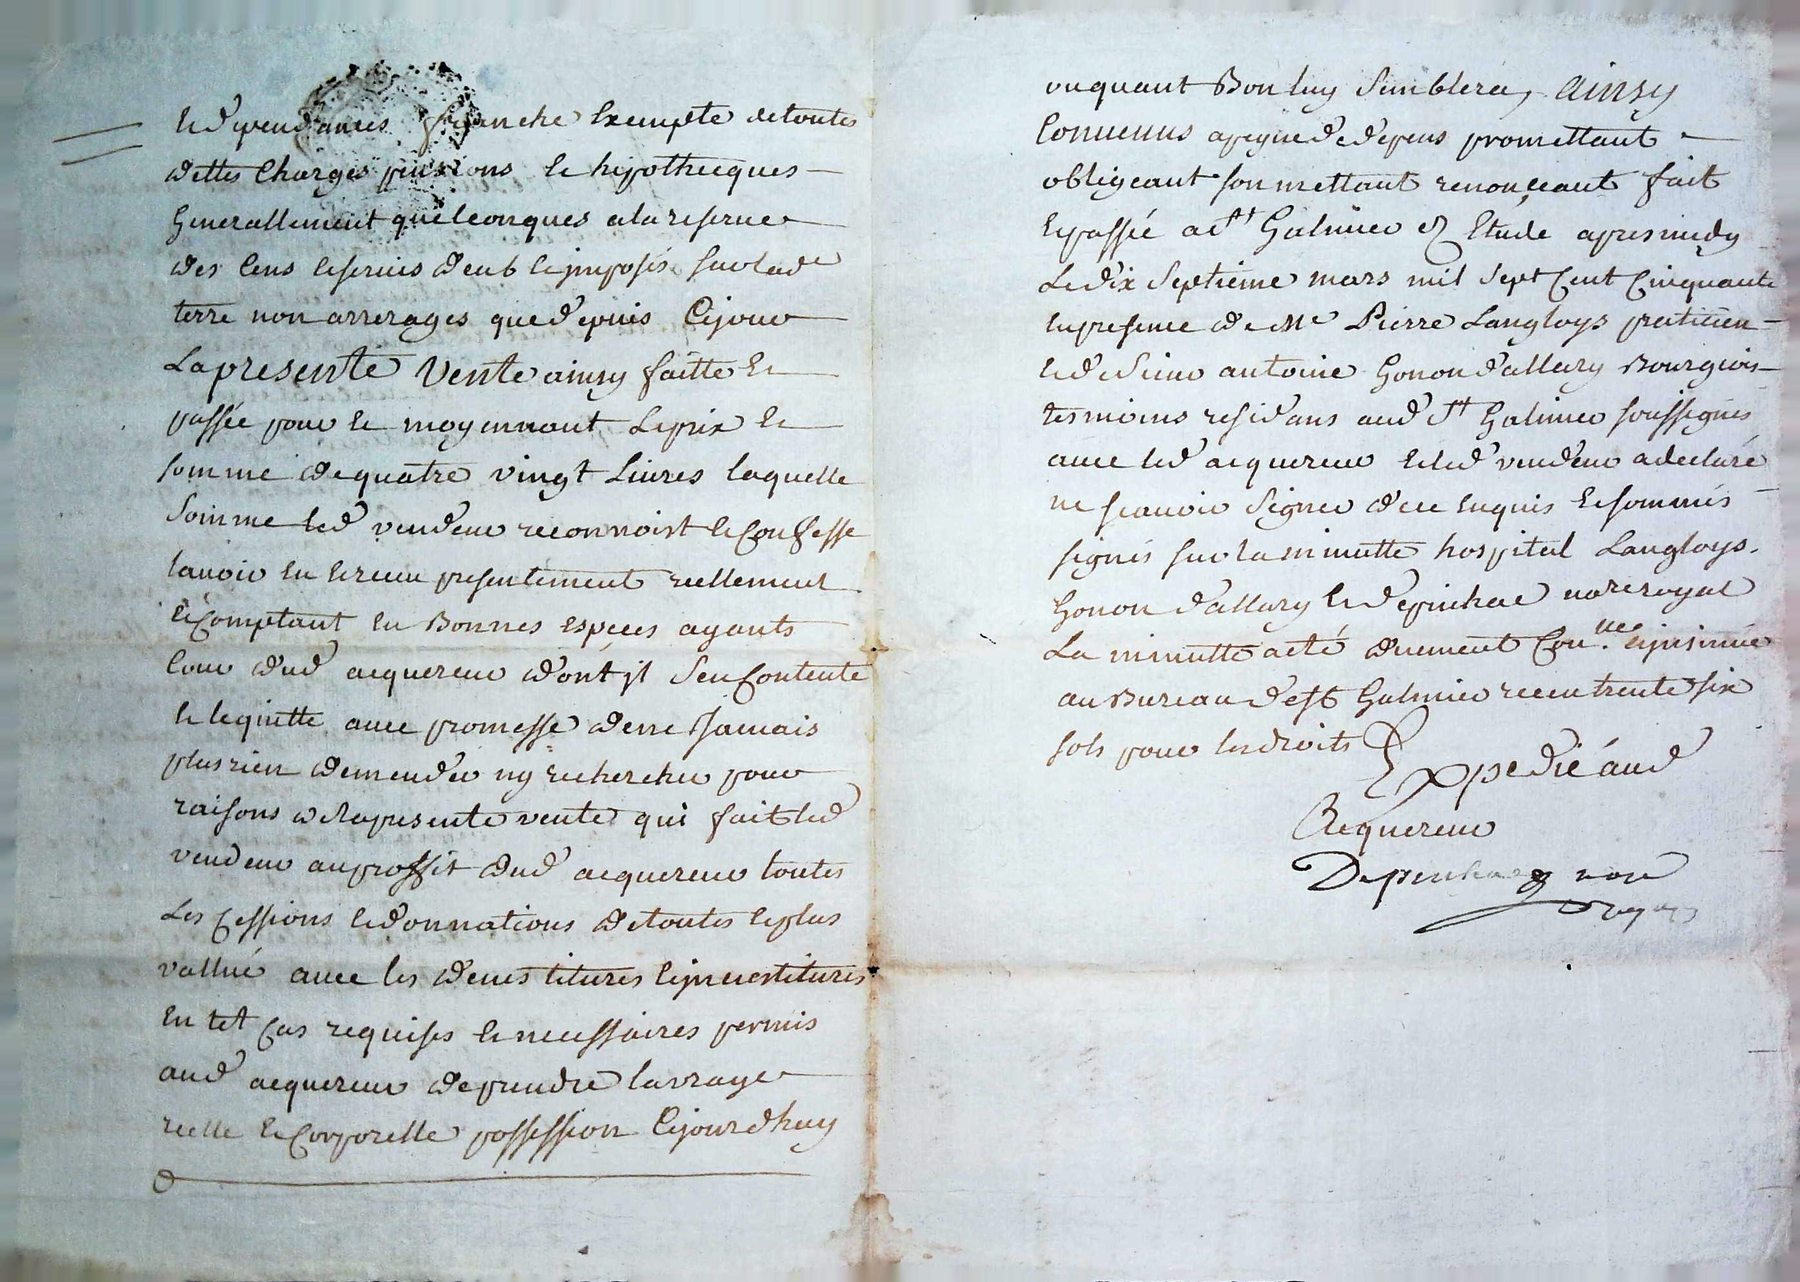 et dépendances franche Exempte de toutes
dettes Charges pensions et hipothecques
Generallement quelconques a la reserve
des Cens et servis deub et imposés sur lad.e
terre non arrerages que depuis Cejour
La presente Vente ainsy faitte et
passée pour et moyennant Le prix et
somme de quatre vingt Livres laquelle
Somme led vendeur reconnoist et Confesse
lavoir eu et receu presentement reellement
et Comptant en Bonnes especes ayants
Cour dud acquereur dont jl s'en Contente
et le quitte avec promesse de ne Jamais
plus rien demender ny rechercher pour
raisons de la presente vente qui fait led
vendeur au proffit dud acquereur toutes
Les Cessions et donnations de toutes et plus
vallué avec les deues titures et jnvestitures
En tel Cas requises et necessaires permis
aud acquereur de prendre la vraye
reelle et Corporelle possession Cejourdhuy
ou quant Bon luy semblera, ainsy
Convenus a peyne de depens promettant
obligeant soumettant renonçeant fait
et passé a St Galmier en Etude apres midy
Le dix septieme mars mil sept Cent Cinquante
en presence de Me Pierre Langloys praticien
et de sieur antoine Gonon d'allary Bourgeois
tesmoins residans aud St Galmier soussignés
avec led acquereur et led vendeur a declaré
ne scavoir signer de ce enquis et sommés
signés sur la minutte hospital Langloys.
Gonon d'allary et depinhac nore royal
La minutte acté duement Con.llée et jnsinuée
au Bureau de St Galmier receu trente six
sols pour les droits Expedié aud
acquereur
Depinhac nore
royal